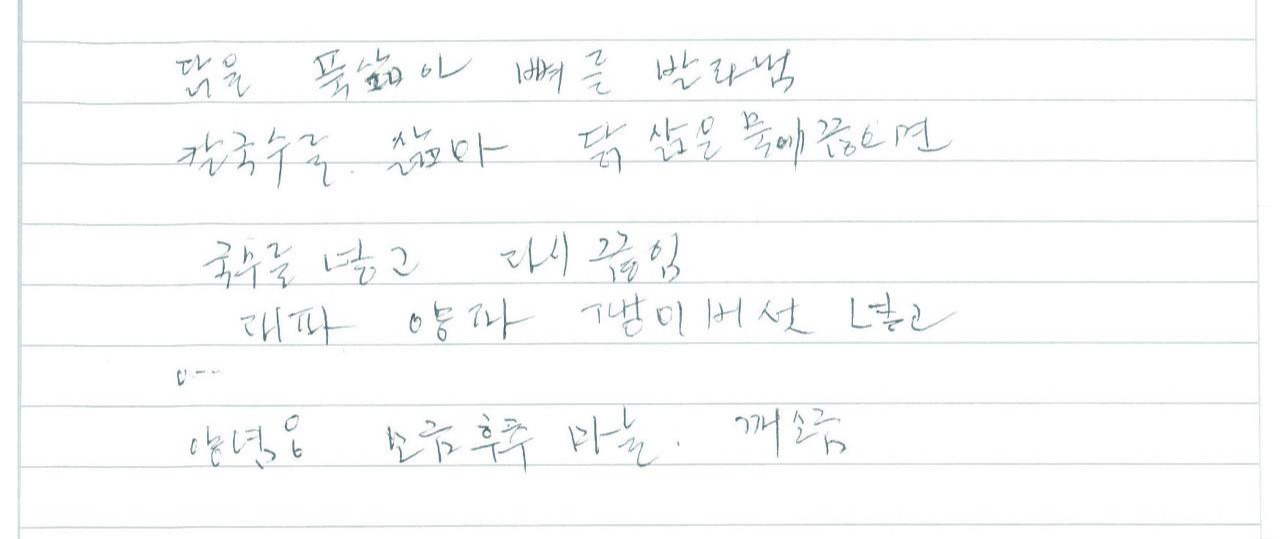 닭을 푹삶아 뼈를 발라냄
칼국수를. 삶아 닭 삶은 묵에 끓으면
국수를 넣고 다시 끓임
대파 양파 팽이버섯 넣고
양념은 소금후추 마늘. 깨소금